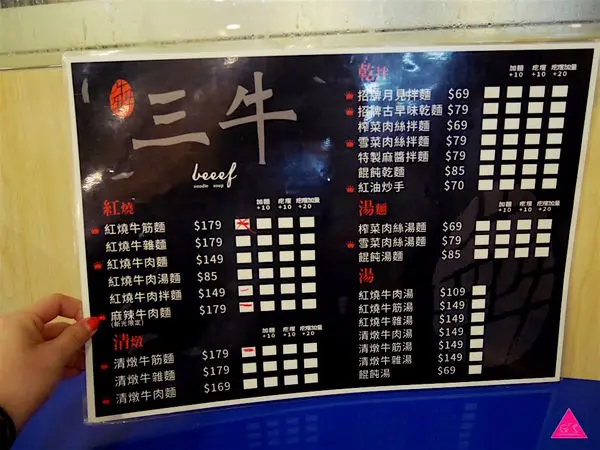 三牛
beeef
noodle soup
紅燒
加麵 +10
疙瘩 +10
疙瘩加量 +20
紅燒牛筋麵 $179
紅燒牛雜麵 $179
紅燒牛肉麵 $149
紅燒牛肉湯麵 $85
紅燒牛肉拌麵 $149
麻辣牛肉麵 $179
清燉
加麵 +10
疙瘩 +10
疙瘩加量 +20
清燉牛筋麵 $179
清燉牛雜麵 $179
清燉牛肉麵 $169
乾拌
加麵 +10
疙瘩 +10
疙瘩加量 +20
招牌月見拌麵 $69
招牌古早味乾麵 $79
榨菜肉絲拌麵 $69
雪菜肉絲拌麵 $79
特製麻醬拌麵 $79
餛飩乾麵 $85
紅油炒手 $70
湯麵
加麵 +10
疙瘩 +10
疙瘩加量 +20
榨菜肉絲湯麵 $69
雪菜肉絲湯麵 $79
餛飩湯麵 $85
湯
紅燒牛肉湯 $109
紅燒牛筋湯 $149
紅燒牛雜湯 $149
清燉牛肉湯 $149
清燉牛筋湯 $149
清燉牛雜湯 $149
餛飩湯 $69